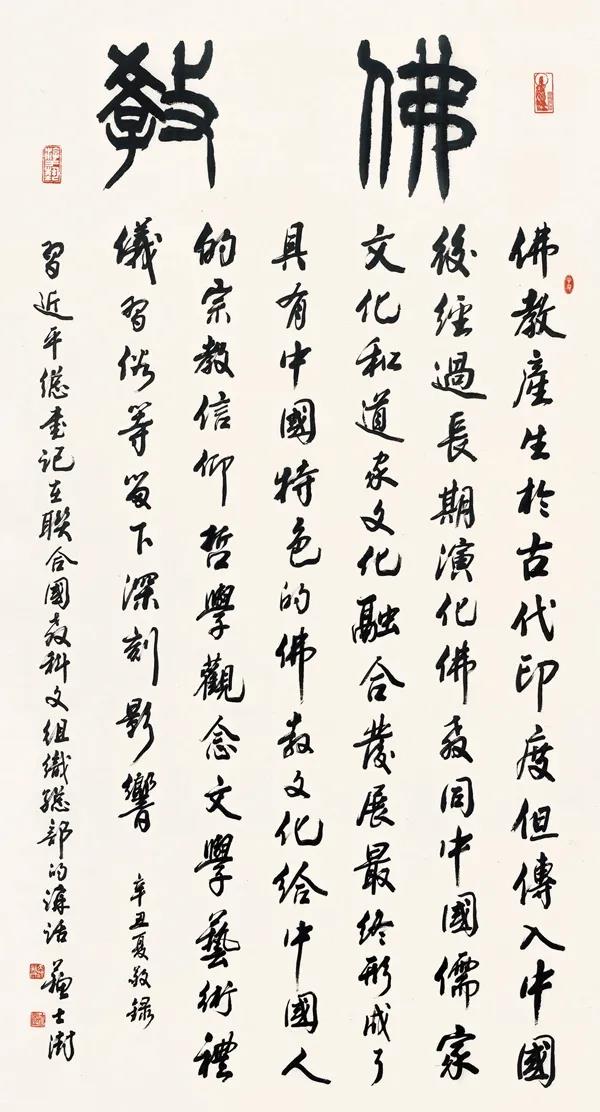 佛教
佛教產生於古代印度但傳入中國
後經過長期演化佛教同中國儒家
文化和道家文化融合發展最終形成了
具有中國特色的佛教文化給中國人
的宗教信仰哲學觀念文學藝術禮
儀習俗等留下深刻影響
辛丑夏敬錄
習近平總書記在聯合國教科文組織總部的講話 蘇士澍